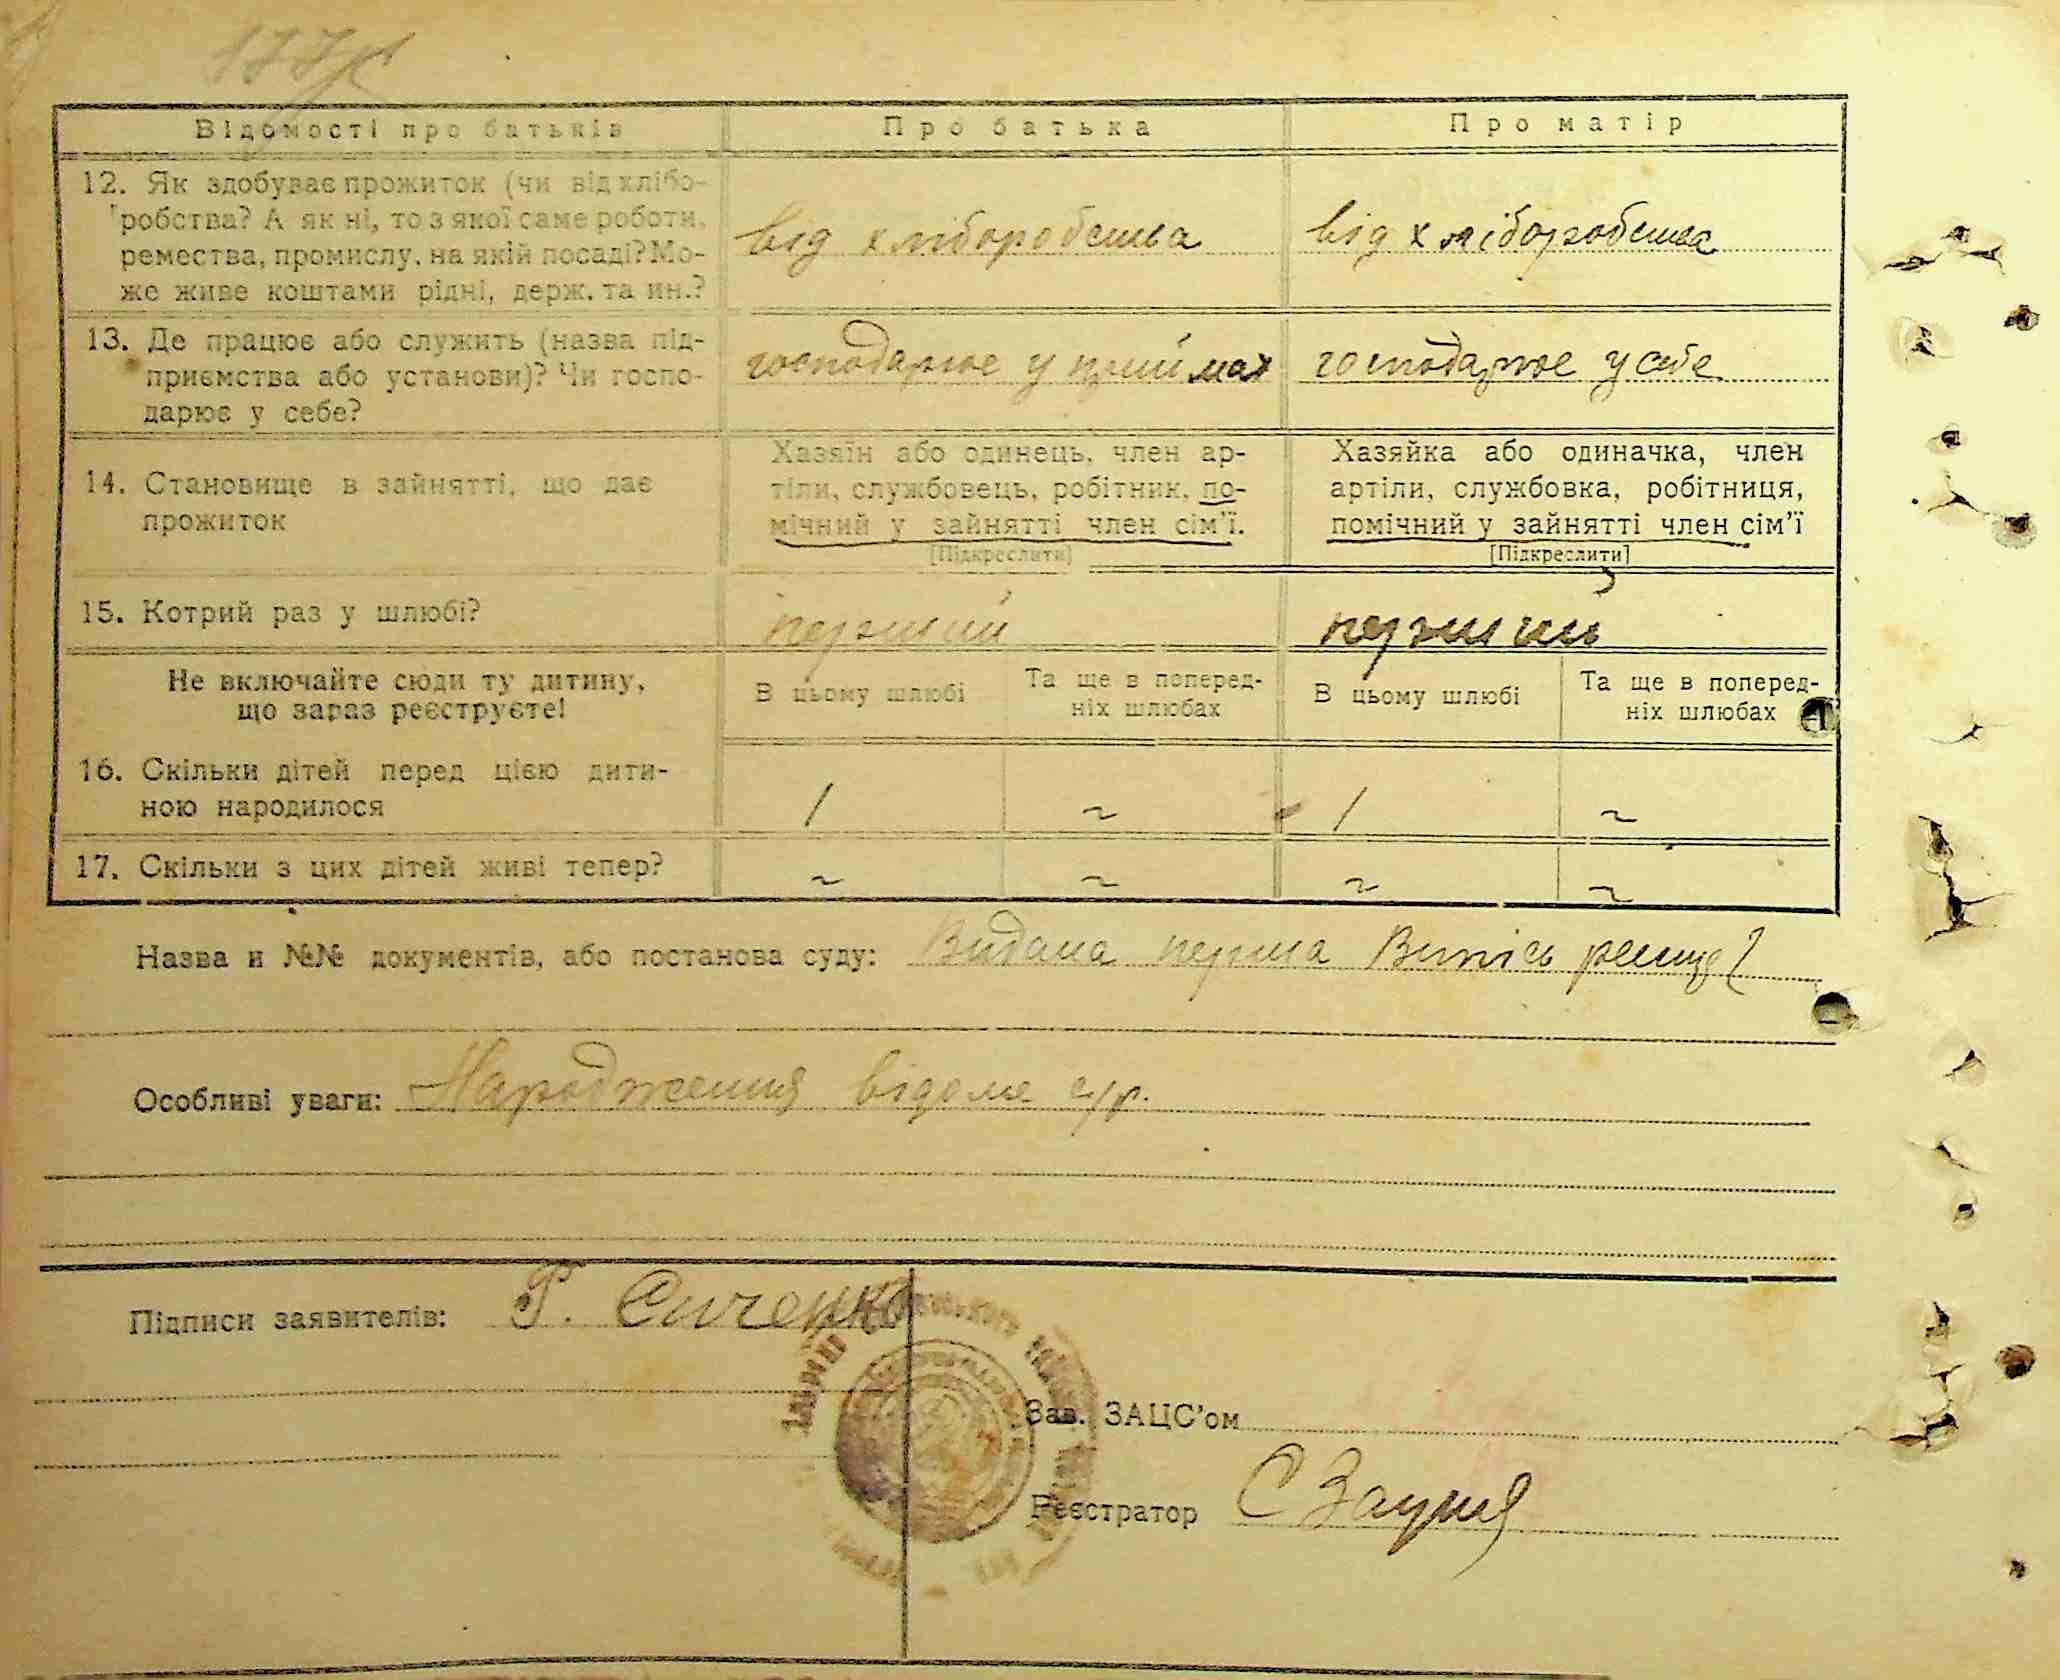 177
Відомості про батьків Про батька Про матір
12. Як здобуває прожиток (чи від хлібо-
робства? А як ні, то з якої саме роботи,
ремества, промислу, на якій посаді? Мо-
же живе коштами рідні, держ. та ин.?
від хліборобства від хліборобства
13. Де працює або служить (назва під-
приємства або установи)? Чи госпо-
дарює у себе?
господарює у приймах господарює у себе
14. Становище в зайнятті, що дає
прожиток
Хазяїн або одинець, член ар-
тіли, службовець, робітник, по-
мічний у зайнятті член сім'ї.
[Підкреслити]
Хазяйка або одиначка, член
артіли, службовка, робітниця,
помічний у зайнятті член сім'ї
[Підкреслити]
15. Котрий раз у шлюбі? перший перший
Не включайте сюди ту дитину,
що зараз реєструєте!
В цьому шлюбі
Та ще в поперед-
ніх шлюбах
В цьому шлюбі
Та ще в поперед-
ніх шлюбах
16. Скільки дітей перед цією дити-
ною народилося
1 ~ 1 ~
17. Скільки з цих дітей живі тепер? ~ ~ ~ ~
Назва и №№ документів, або постанова суду: Видана перша Випись
Особливі уваги: Народження відоме с/р.
Підписи заявителів:
Зав. ЗАЦС'ом
Реєстратор